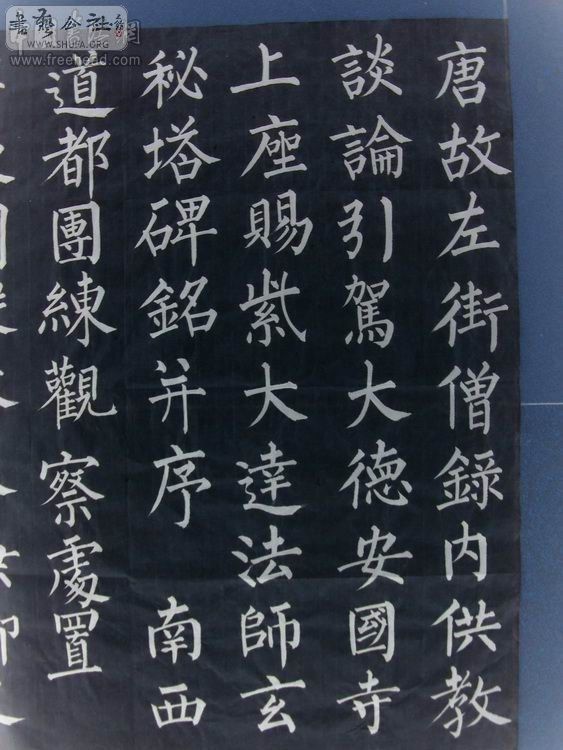 唐故左街僧録内供教
談論引駕大德安國寺
上座賜紫大達法師玄
秘塔碑銘并序 南西
道都團練觀察處置
www.SHUFA.ORG
www.freehead.com